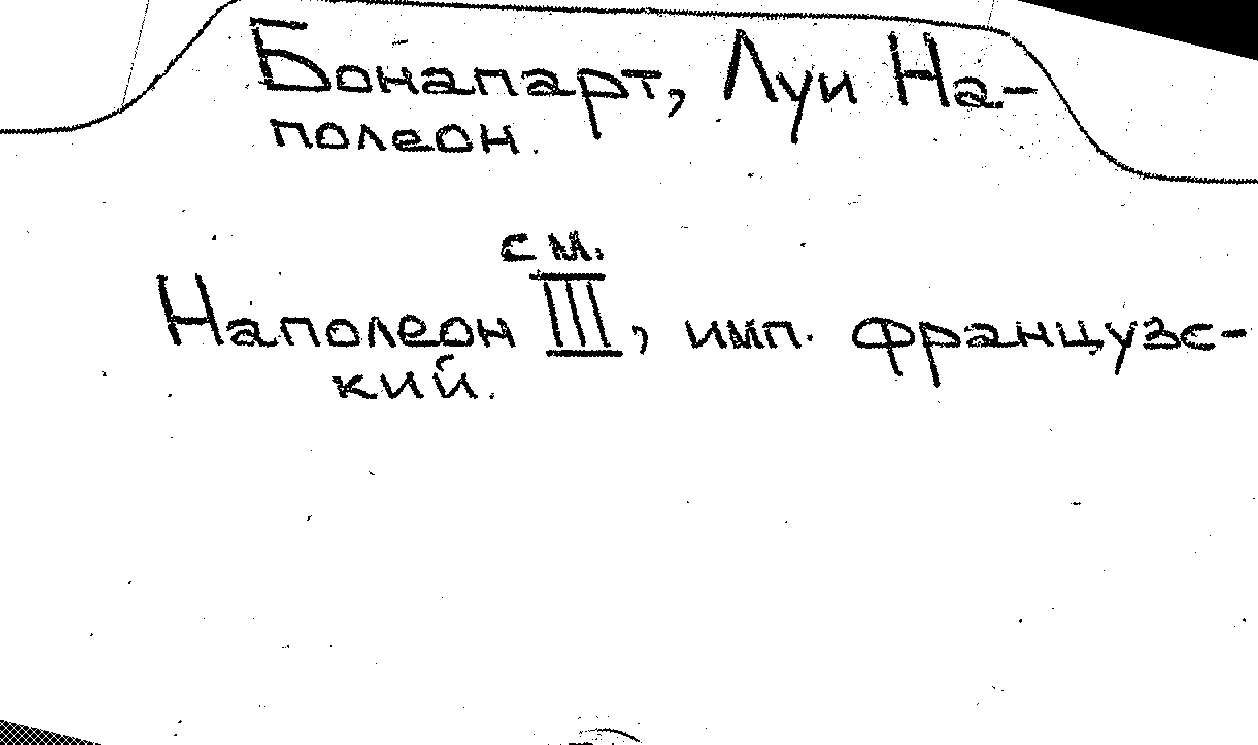 Бонапарт, Луи На-
полеон.
см.
Наполеон III, имп. французс-
кий.